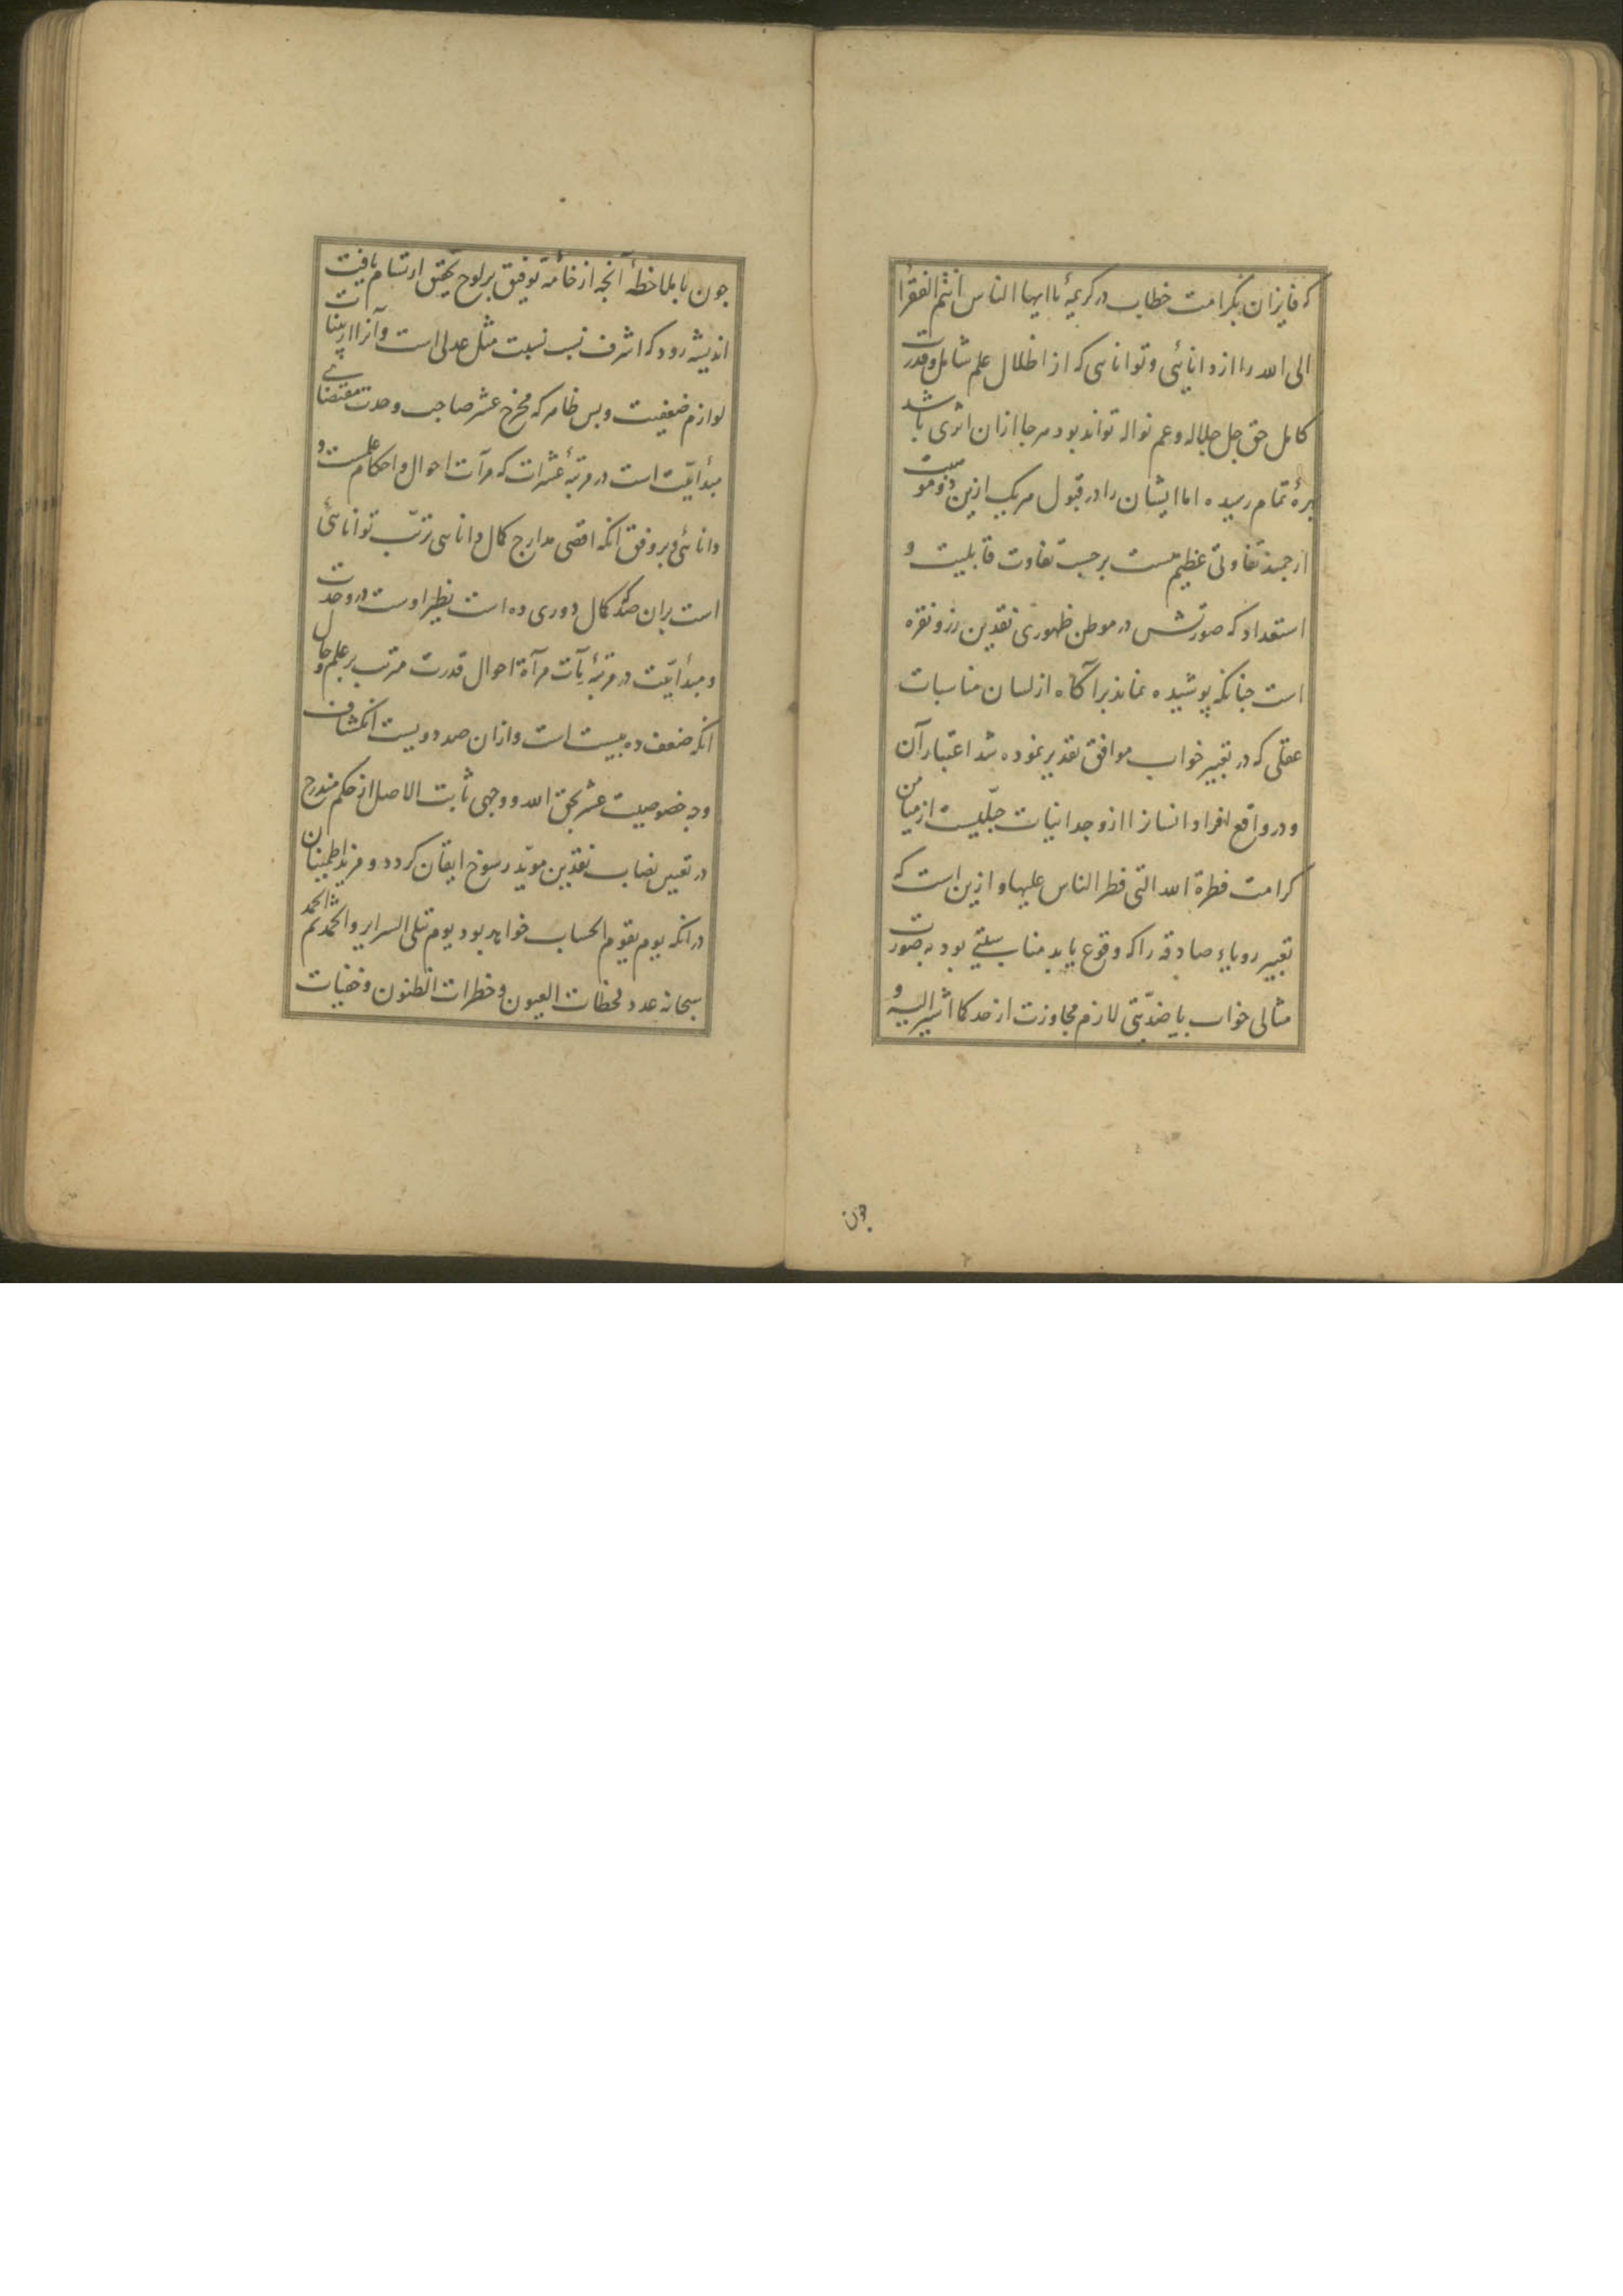 که فایزان بکرامت خطاب در کریمهٔ یا ایها الناس انتم الفقرا
الی الله را از دانایی و توانایی که از اظلال علم شامل و قدرت
کامل حق جل جلاله و عم نواله تواند بود هر جا ازان اثری باشد
بهرهٔ تمام رسیده اما ایشان را در قبول هر یک ازین دو موهبت
ارجمند تفاوتی عظیم هست بر حسب تفاوت قابلیت و
استعداد که صورتش در موطن ظهوری نقدین زر و نقره
است جنانکه پوشیده نماند بر آگاه از لسان مناسبات
عقلی که در تعبیر خواب موافق تقدیر نموده شد اعتبار آن
و در واقع افراد انسانرا از وجدانیات جبلیست از میامن
کرامت فطرة الله التی فطر الناس علیها و ازین است که
تعبیر رویاء صادقه را که وقوع یابد مناسبتی بود به صورت
مثالی خواب یا ضدیتی لازم مجاوزت از حد کما اشیر الیه و
جون
جون با ملاخظهٔ آنجه از خامهٔ توفیق بر لوح تحقیق ارتسام یافت
اندیشه رود که اشرف نسب نسبت مثل عدلی است و آنرا اربینات
لوازم ضعفیت و بس ظاهر که مخرج عشر صاحب وحدت مقتضای
مبدأیّت است در مرتبهٔ عشرات که مرآت احوال و احکام علمست و
دانائی و بر وفق انکه اقصی مدارج کمال دانایی ترتّب توانائی
است بران صد که کمال دوری ده است نظیر اوست در وحدت
و مبدأیّت در مرتبهٔ مآت مرآة احوال قدرت مرتب بر علم و حال
انکه ضعف ده بیست است و ازان صد دویست انکشاف
وجه خصوصیت عشر بحق الله و وجهی ثابت الاصل از حکم مندرج
در تعیین نصاب نقدین موید رسوخ ایقان کردد و مزید اطمینان
در انکه یوم یقوم الحساب خواهد بود یوم تبلی السرایر و الحمد لله ثم الحمد
سبحانه عدد لحظات العیون و خطرات الظنون و خفیات